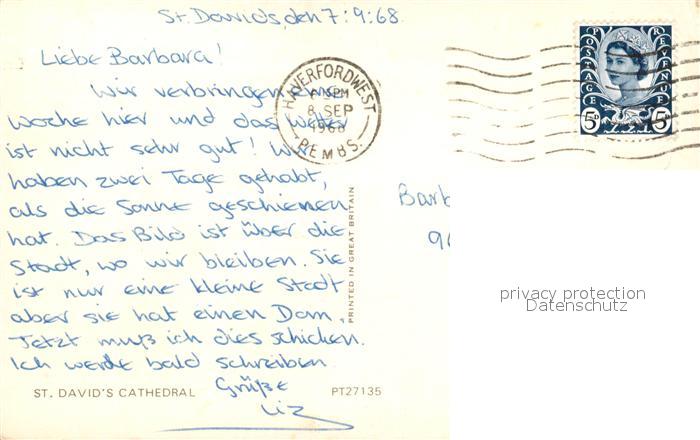 St. David's, den 7:9:68.
Liebe Barbara!
Wir verbringen eine
Woche hier und das Wetter
ist nicht sehr gut! Wir
haben zwei Tage gehabt,
als die Sonne geschienen
hat. Das Bild ist über die
Stadt, wo wir bleiben. Sie
ist nur eine kleine Stadt
aber sie hat einen Dom.
Jetzt muß ich dies schicken.
Ich werde bald schreiben.
Grüße
Liz
ST. DAVID'S CATHEDRAL
PT27135
PRINTED IN GREAT BRITAIN
HAVERFORDWEST
PM
8 SEP
1968
PEMBS.
POSTAGE REVENUE
5D 5D
Barb
privacy protection
Datenschutz